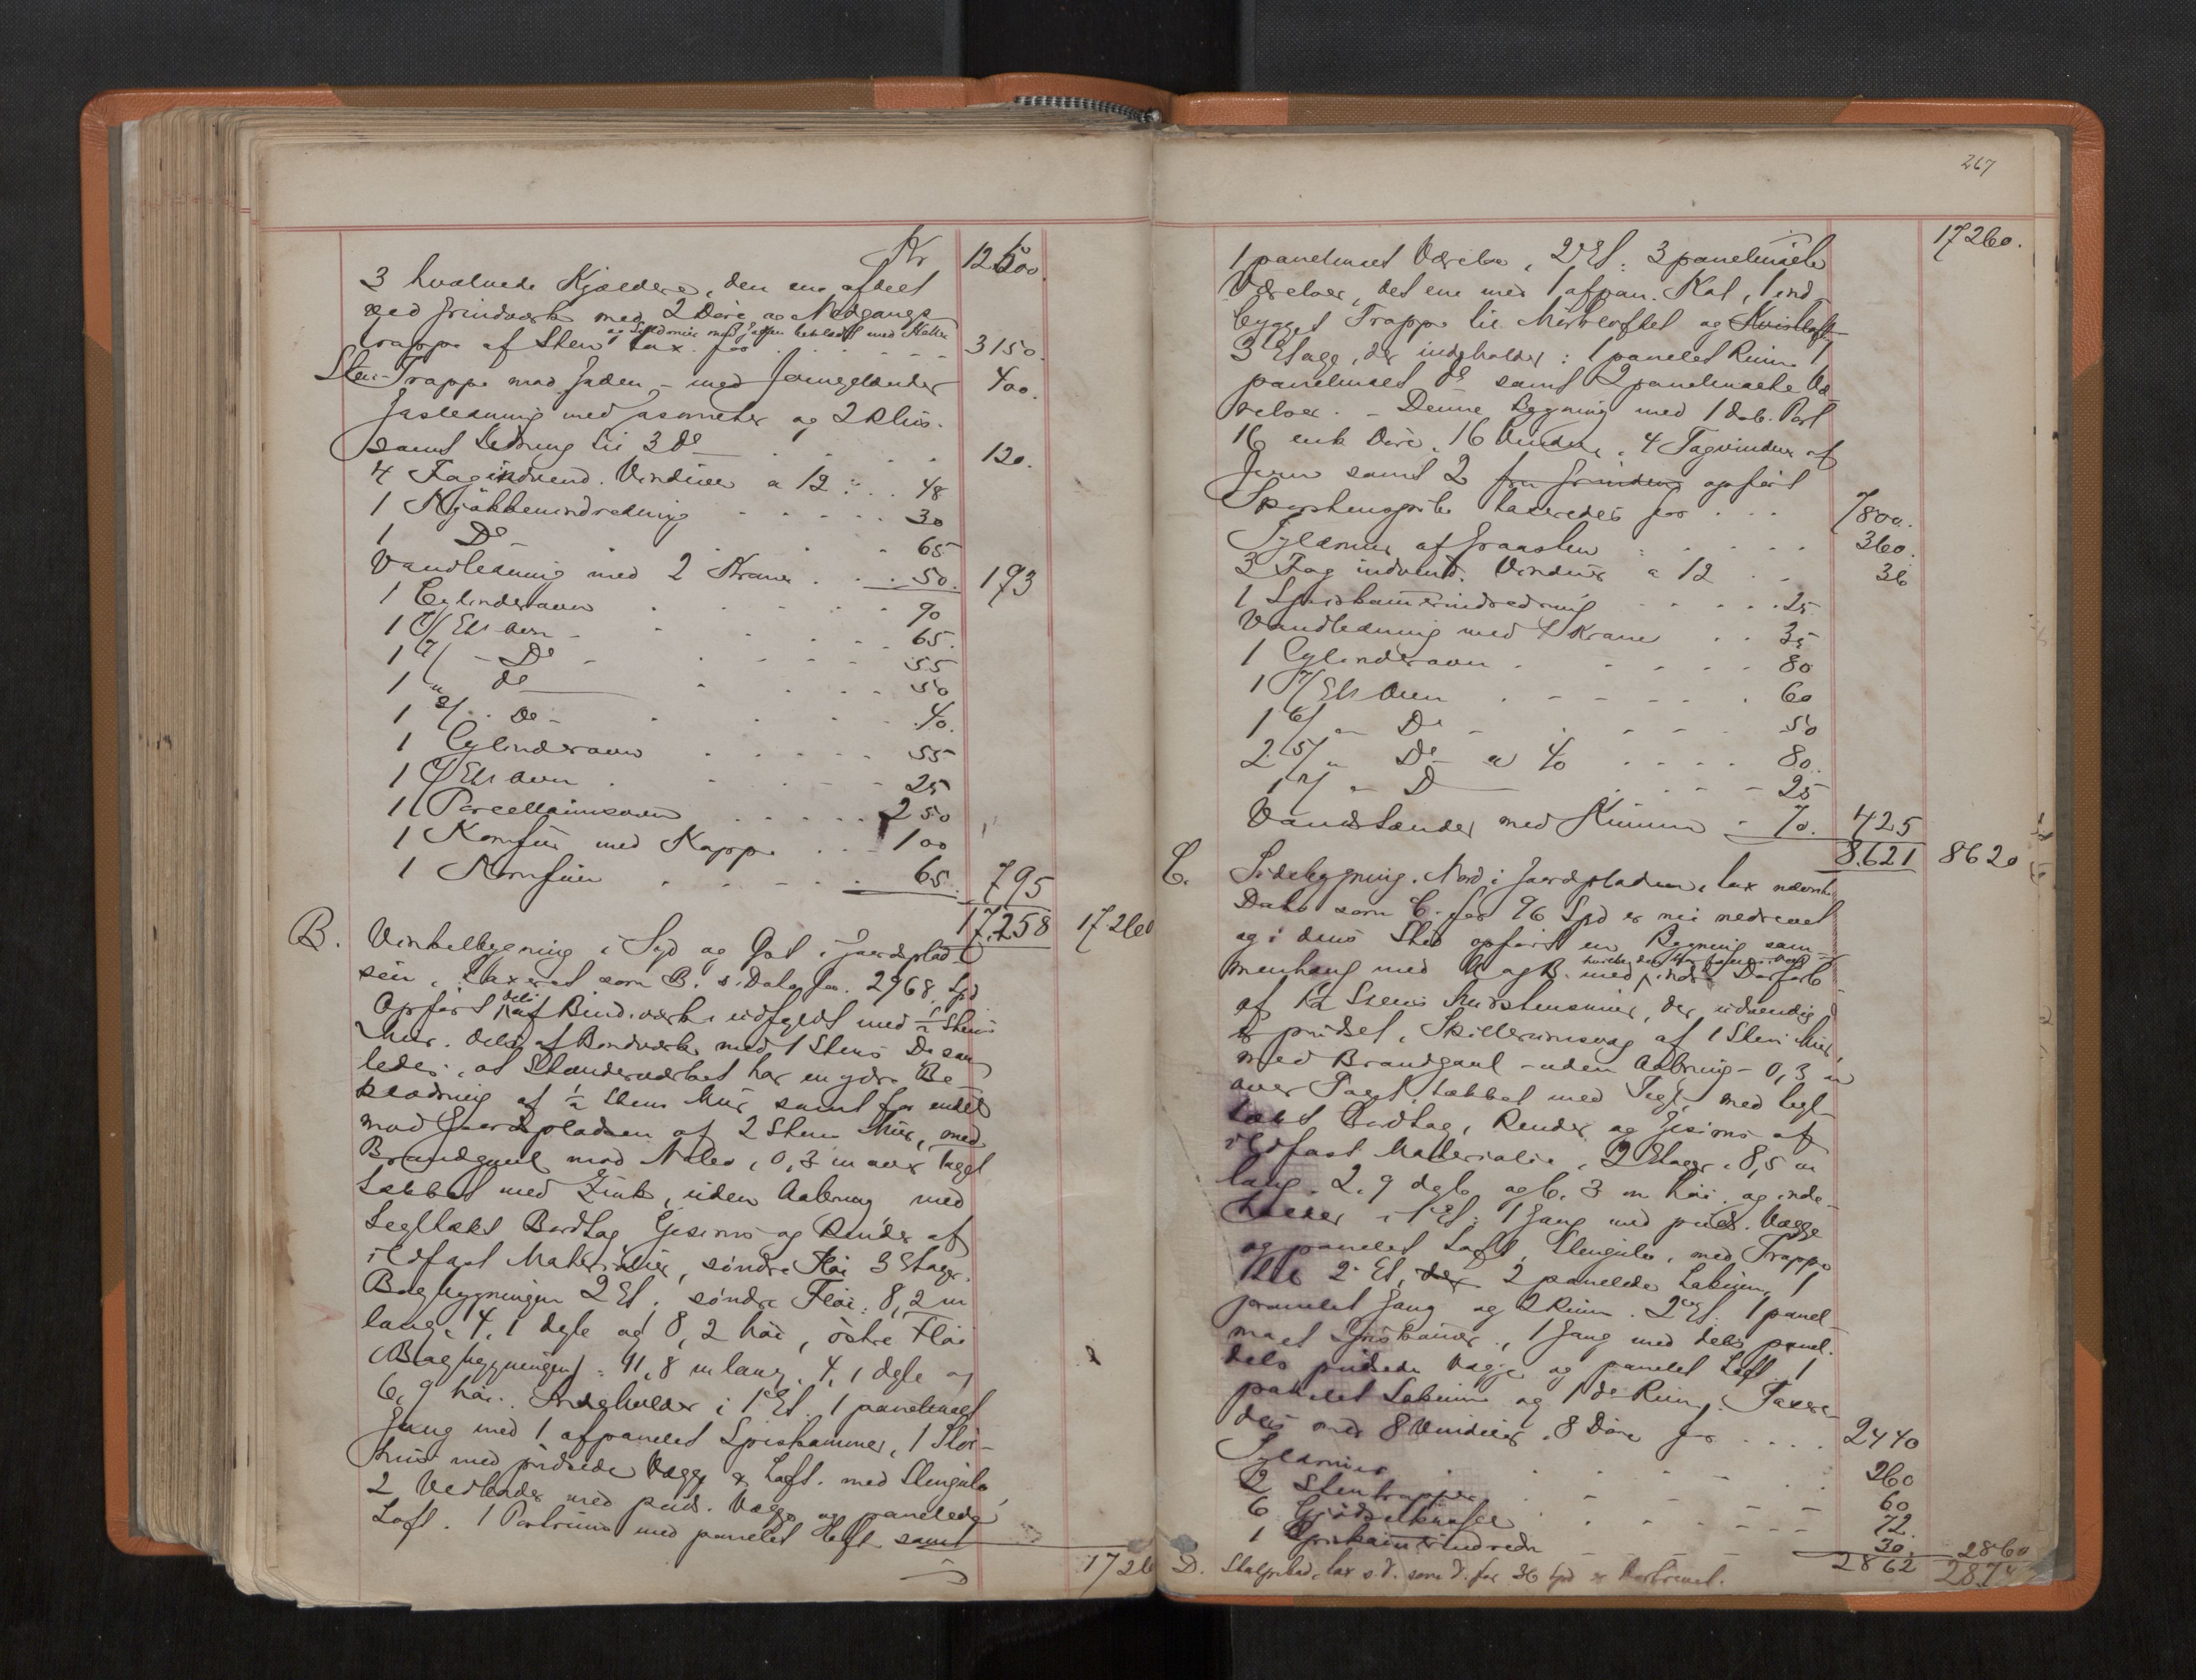 Kr 12600.
3 hvælvede Kjældere, den ene afdelt
ved Grindværk med 2 Döre og Nedgangs
og Syldmur mod Gaden beklædt med Heller
trappe af Sten tax. for 3150.
Sten-Trappe mod Gaden - med Jerngelænder 400.
Gasledning med Gasometer og 2 Blus.
samt Ledning til 3 Do 120.
4 Fag indvend. Vinduer a 12 : . . 48
1 Kjökkenindredning 30
1 Do 65
Vandledning med 2 Kraner . . . 50. 193
1 Cylinderovn 90
1 Ets Ovn 65.
1 7/ - Do - 55
1 " do 50
1 3/ . Do - 40.
1 Cylinderovn 55
1 Ets Ovn 25
1 Porcellainsovn 250
1 Komfur med Kappe . . . 100
1 Komfur 65. 795
17.258 17260
B. Vinkelbygning i Syd og Öst i Gaardsplad-
sen, taxeret som B. s. Dato for 2968 Spd
Opfört dels af Bindværk udfyldt med 1/2 Stens
Mur. dels af Bindværk med 1 Stens Do saa
ledes, at Stenderværket har en ydre Be-
klædning af 1/2 Stens Mur samt for endel
mod Gaardspladsen af 2 Stens Mur, med
Brandgavl mod Nabo, 0,3 m over Taget
tækket med Zink, uden Aabning med
tegltækt Bordtag Gesims og Render af
ildfast Materialier, söndre Flöi 3 Etager.
Bagbygningen 2 Et. söndre Flöi: 8,2 m
lang, 4,1 dyb og 8,2 höi, östre Flöi
(Bagbygningen): 11,8 m lang, 4,1 dyb og
6,9 höi. Indeholder i 1 Et. 1 panelmalt
Gang med 1 afpanelet Spiskammer, 1
hus med pudsede Vægge & Loft. med Stengulv,
2 Vedboder med puds. Vægge og panelede
Loft. 1 Portrum med panelet Loft samt
1726
267
17260.
1 panelmalt Værelse, 2 Et: 3 panelmalte
Værelser, det ene med 1 afpan. Kot, 1 ind-
bygget Trappe til Mörkloftet og Kvistloft
3 Etage, der indeholder: 1 panelet Rum 1
panelmalt do samt 2 panelmalte Væ-
relser. - Denne Bygning med 1 dob. Port
16 enk Döre, 16 Vinduer, 4 Tagvinduer af
Jern samt 2 opfört
Skorstenspibe taxeredes for . . . 7800.
Syldmur af Graasten 360.
3 Fag indvend. Vinduer a 12 36
1 Spiskammerindredning 25
Vandledning med 1 Kran 35
1 Cylinderovn 80
1 7/ Ets Ovn 60
1 6/ " Do - 50
2 5/ " Do - a 40 80.
1 " D 25
Vandstender med Kumme - 70. 425
8.621 8620
C. Sidebygning. Nord i Gaardspladsen, tax nævnte
Dato som C. for 96 Spd er nu nedrevet
og i dens Sted opfört en Bygning sam-
menhæng med A og B. med
af 1/2 Stens Murstensmur, der udvendig
er pudset, Skillerumsvæg af 1 Sten Mur,
med Brandgavl - uden Aabning - 0,3 m
over Taget, tækket med Tegl, med tegl-
tækt Bordtag, Render og Gesims af
ildfast Materialie, 2 Etager. 8,5 m
lang. 2,9 dyb og 6,3 m höi. og inde-
holder i 1 Et: 1 Gang med puds. Vægge
og panelet Loft, Stengulv, med Trappe
til 2 Et, 2 panelede Lokum, 1
panelet Gang og 2 Rum. 2 Et: 1 panel-
malt Spiskammer, 1 Gang med dels panel.
dels pudsede Vægge og panelet Loft, 1
panelet Lokum og 1 do Rum. Taxere-
des med 8 Vinduer, 8 Döre for . . . . 2440
Syldmur 260
2 Stentrapper 60
6 72.
1 Spiskammerindredn 30. 2860
2862 287
D. tax s. d. som D. for 36 Spd er bortrevet.